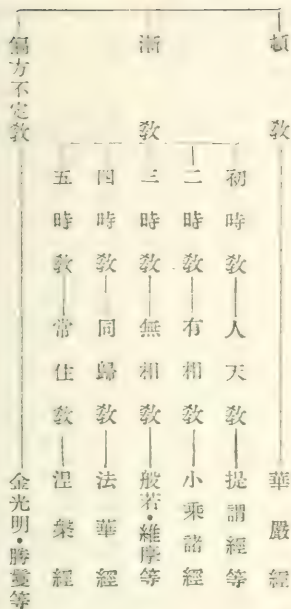 頓教 華嚴經
漸教
初時教 人天教 提謂經等
二時教 有相教 小乘諸經
三時教 無相教 般若・維摩等
四時教 同歸教 法華經
五時教 常住教 涅槃經
偏方不定教 金光明・勝鬘等